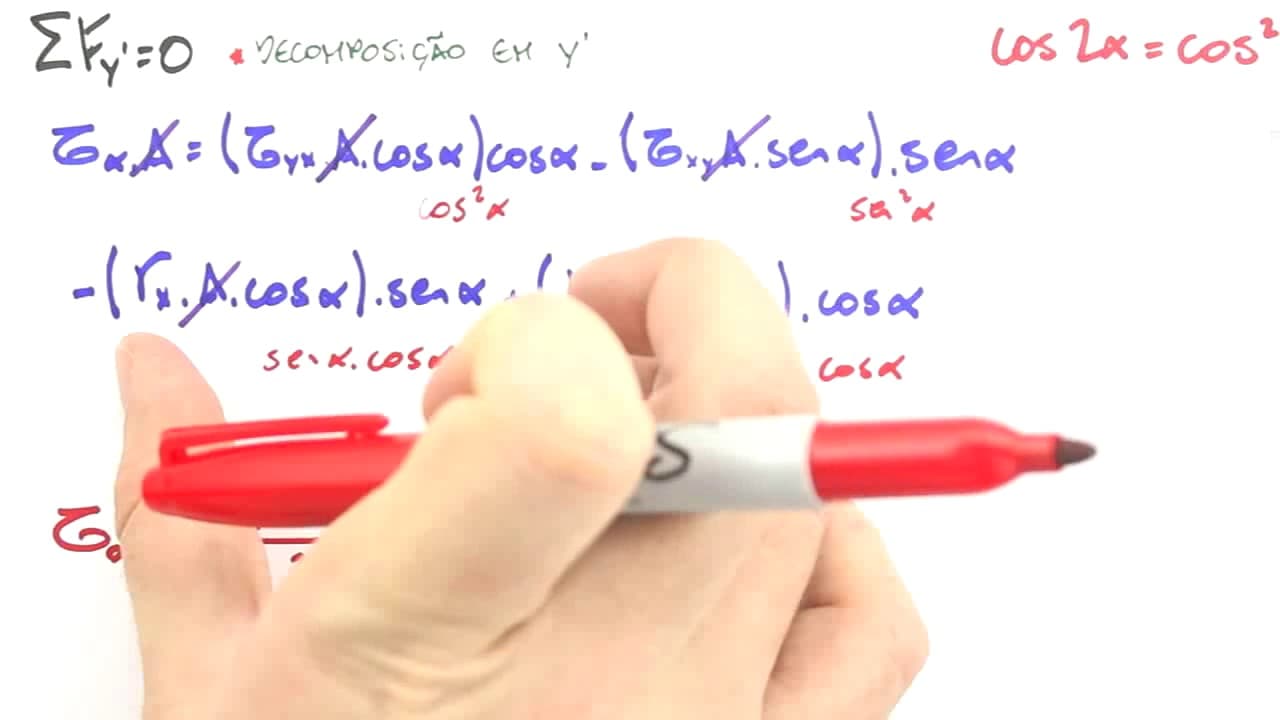 ΣFy'=0 * DECOMPOSIÇÃO EM Y'
cos 2α = cos²
τα.A = (τyx.A.cosα)cosα - (τxy.A.senα).senα
cos²α sen²α
-(σx.A.cosα).senα ( ).cosα
sen α.cosα cosα
τα